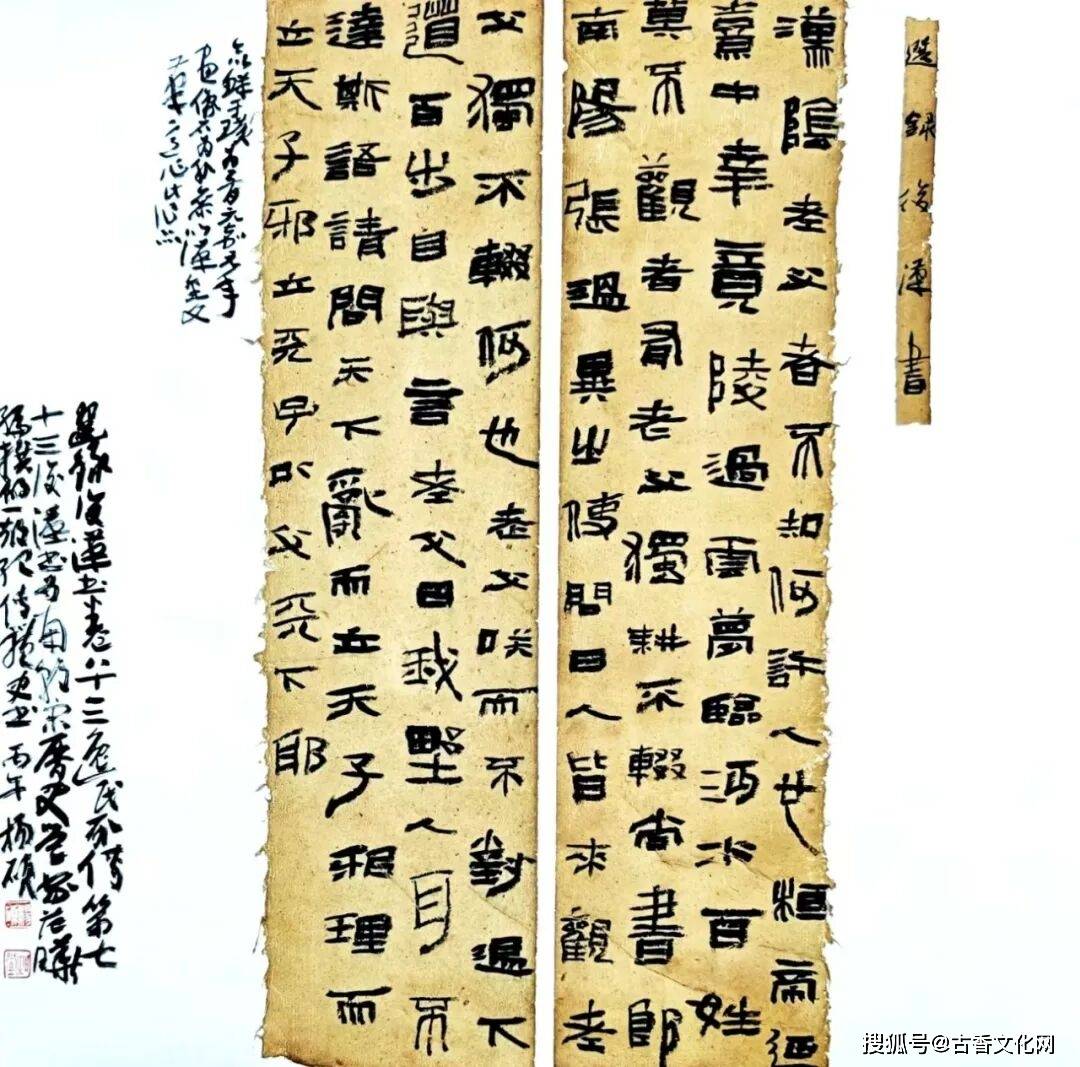 選錄後漢書
漢陰老父者不知何許人也桓帝延
熹中幸竟陵過雲夢臨沔水百姓
莫不觀者有老父獨耕不輟尚書郎
南陽張溫異之使問曰人皆來觀老
父獨不輟何也老父咲而不對溫下
道百步自與言老父曰我野人耳不
達斯語請問天下亂而立天子邪理而
立天子邪立天子以父天下耶
選錄後漢書卷八十三逸民列傳第七
十三後漢書為南朝宋歷史學家范曄所
編撰的一部紀傳體史書 丙午 楊碩
搜狐号@古香文化网